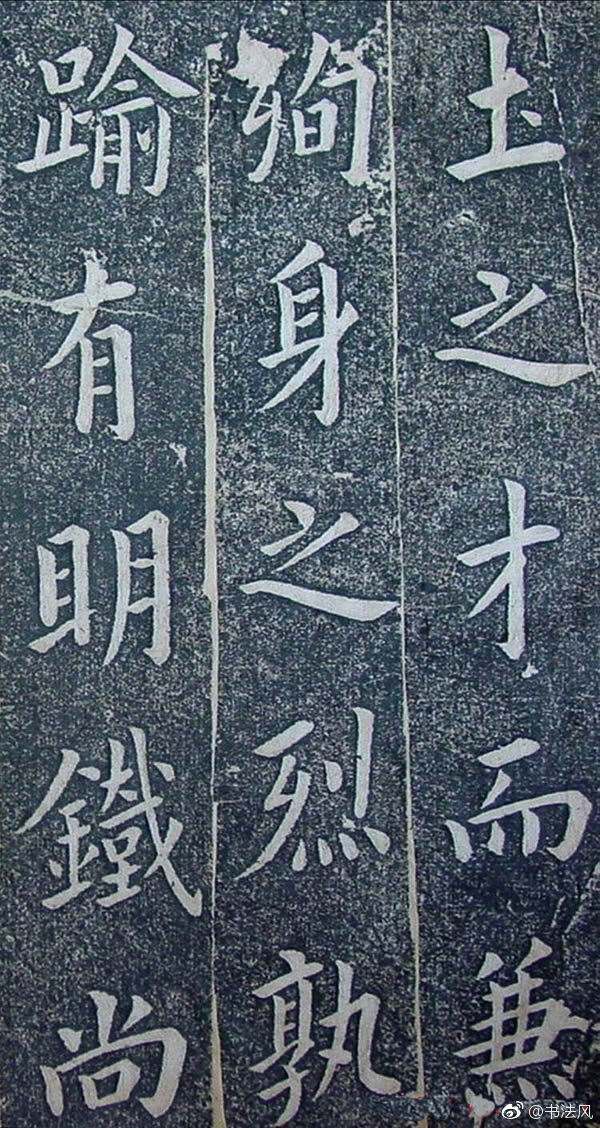 圡之才而兼
殉身之烈孰
踰有明鐵尚
@书法风